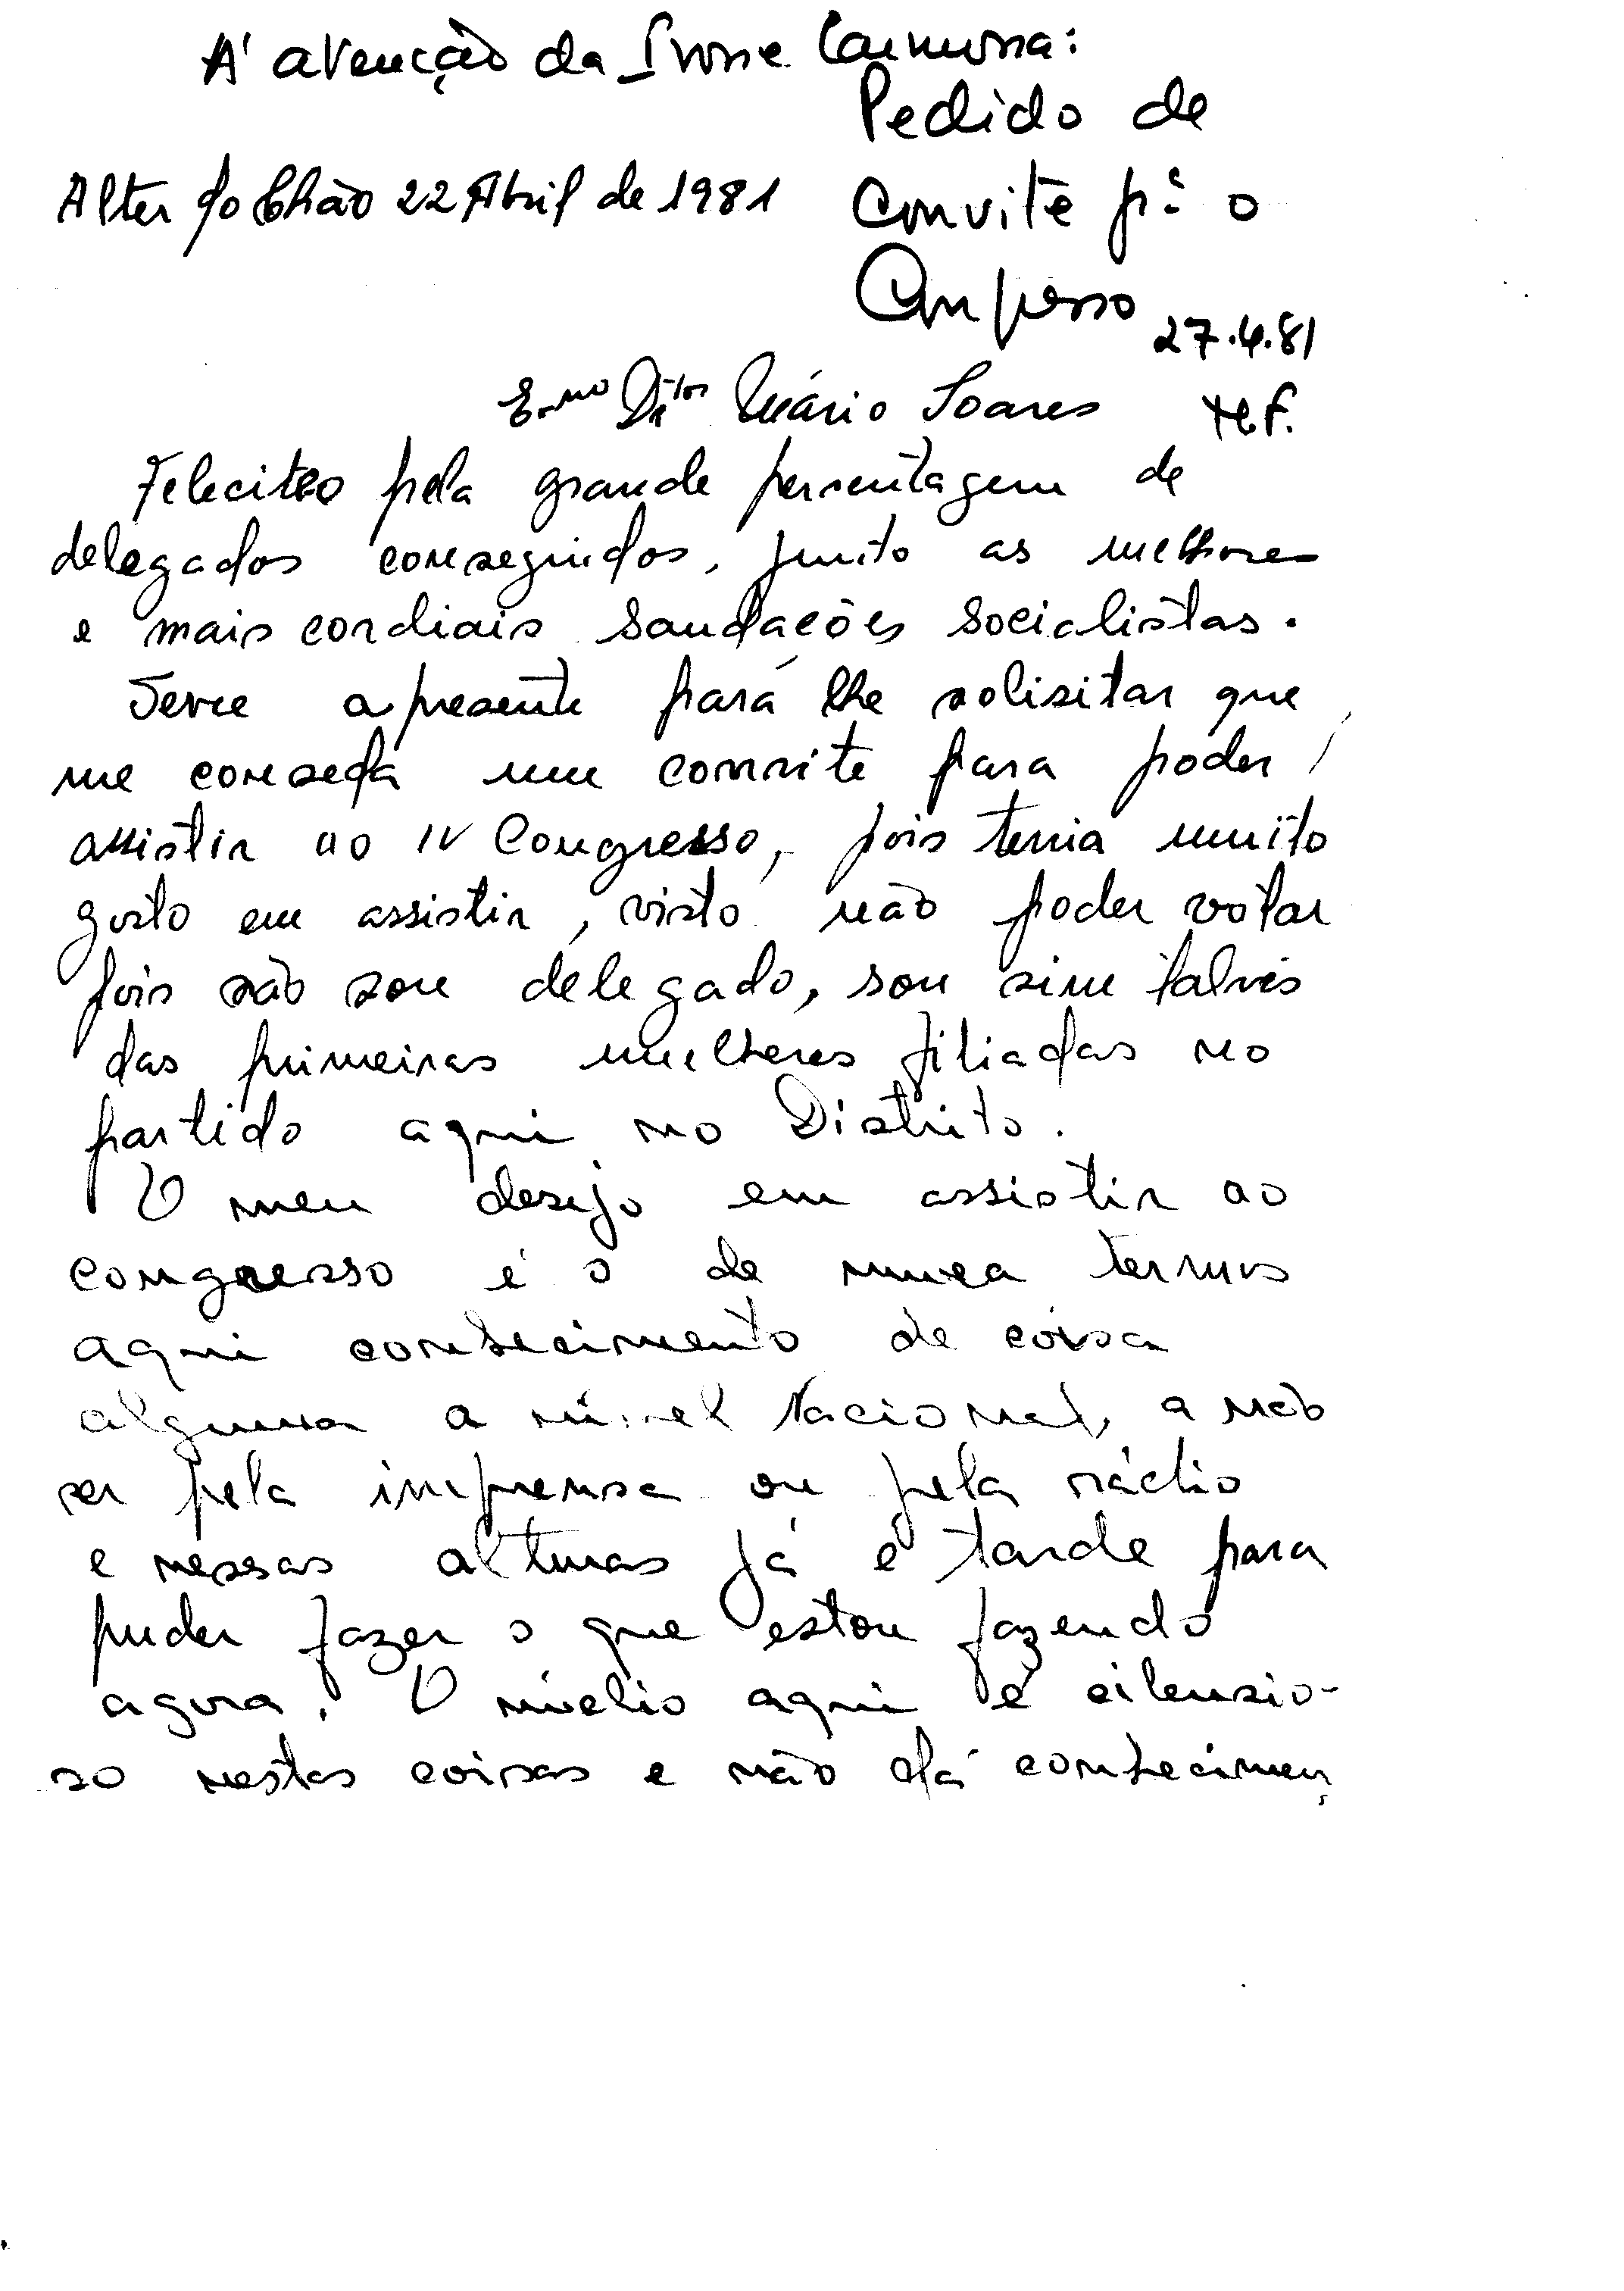 A' atenção da Ivone
Pedido de
Alter do Chão 22 Abril de 1981
convite pª o
Congresso
27.4.81
Exmo Drtor Mário Soares
M.F.
Felecitto pela grande persentagem de
delegados conseguidos, junto as melhores
e mais cordiais saudações socialistas.
Serve a presente para lhe solisitar que
me conseda um convite para poder
assistir ao IV Congresso, pois teria muito
gosto em assistir, visto não poder votar
pois não sou delegado, sou sim talvés
das primeiras mulheres filiadas no
partido aqui no Distrito.
O meu desejo em assistir ao
congresso é o de nunca termos
aqui conhecimento de coisa
alguma a nível Nacional, a não
ser pela imprensa ou pela rádio
e nessas alturas já é tarde para
puder fazer o que estou fazendo
agora. O núclio aqui é cilensio-
so nestas coisas e não dá conhecimen